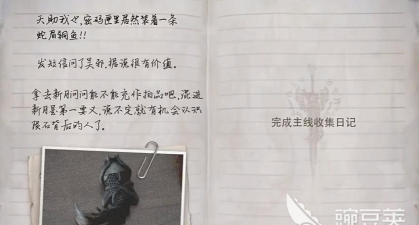 天助我也,密码匣里居然装着一条
蛇眉铜鱼!!
发短信问了吴邪,据说很有价值。
拿去新月问问能不能充作拍品吧,混进
新月是第一要义,说不定就有机会认识
陨石背后的人了。
完成主线收集日记
豌豆荚